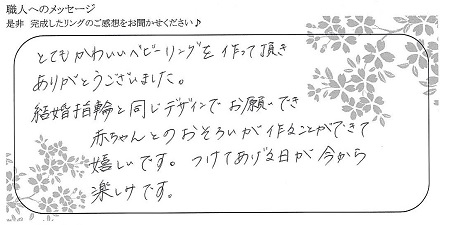 職人へのメッセージ
是非 完成したリングのご感想をお聞かせください♪
とてもかわいいベビーリングを作って頂き
ありがとうございました。
結婚指輪と同じデザインでお願いでき
赤ちゃんとのおそろいが作ることができて
嬉しいです。つけてあげる日が今から
楽しみです。